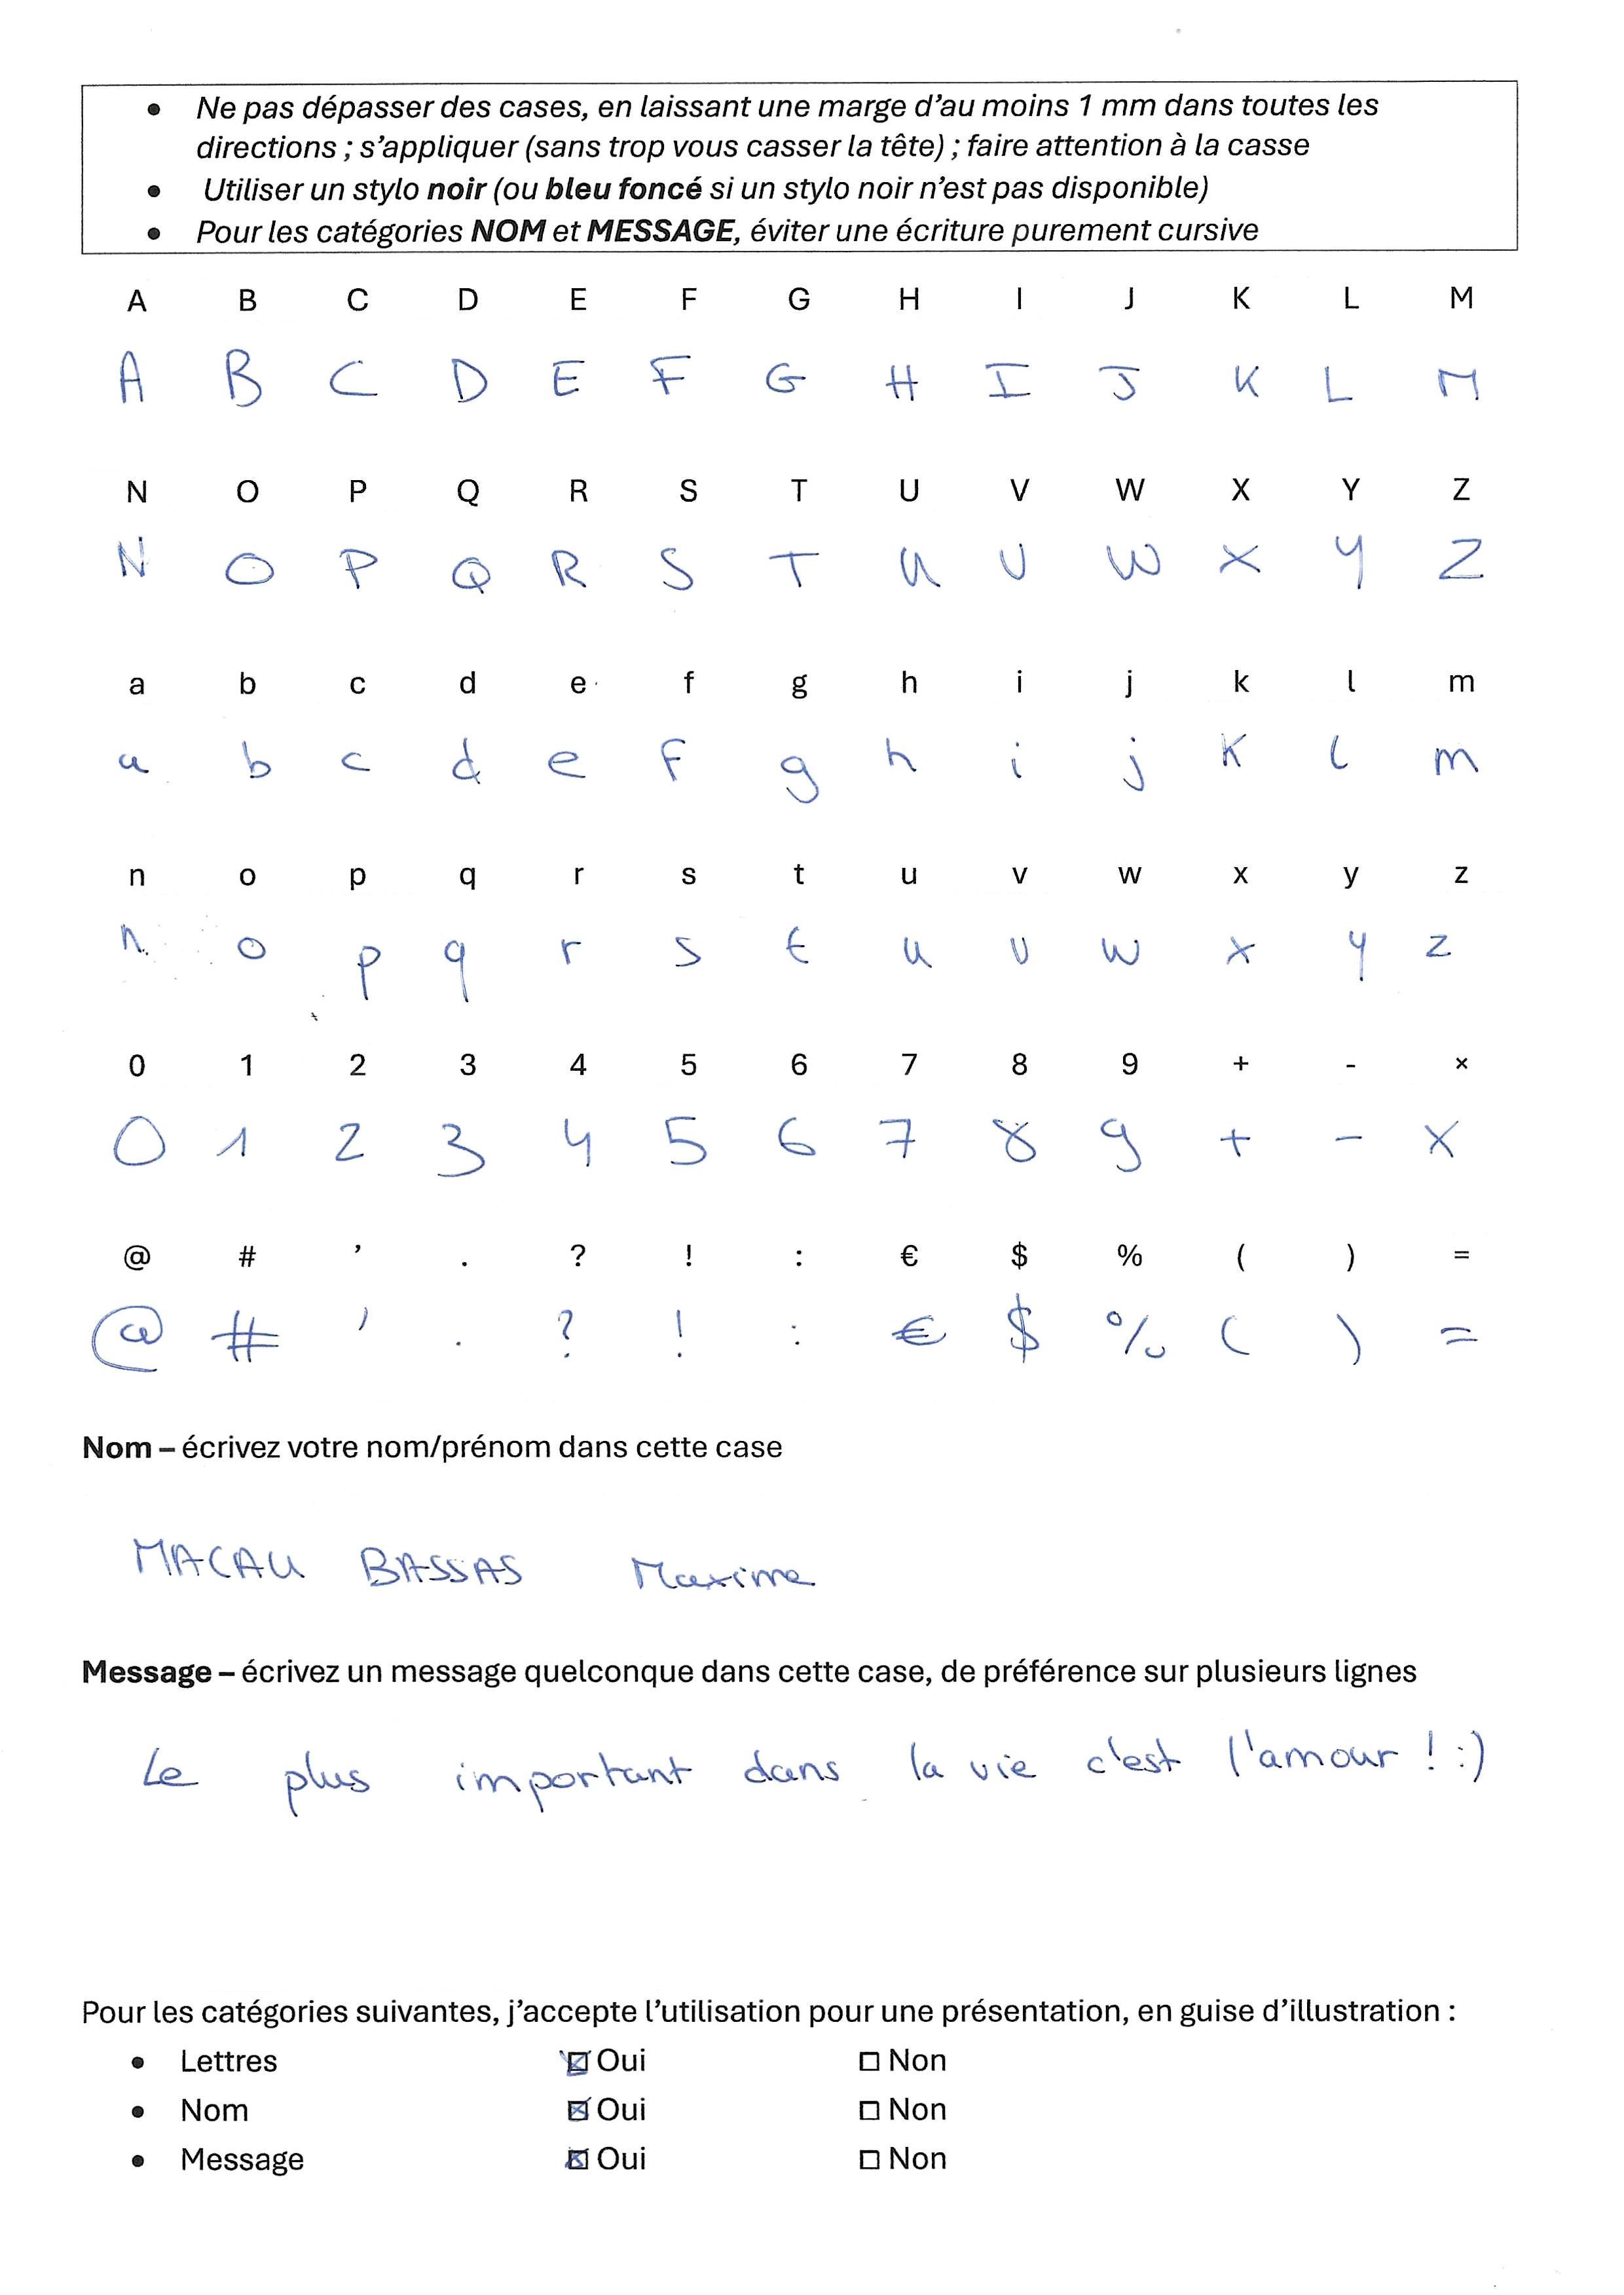 • Ne pas dépasser des cases, en laissant une marge d’au moins 1 mm dans toutes les
directions ; s’appliquer (sans trop vous casser la tête) ; faire attention à la casse
• Utiliser un stylo noir (ou bleu foncé si un stylo noir n’est pas disponible)
• Pour les catégories NOM et MESSAGE, éviter une écriture purement cursive
A B C D E F G H I J K L M
A B C D E F G H I J K L M
N O P Q R S T U V W X Y Z
N O P Q R S T U V W X Y Z
a b c d e f g h i j k l m
a b c d e f g h i j k l m
n o p q r s t u v w x y z
n o p q r s t u v w x y z
0 1 2 3 4 5 6 7 8 9 + - ×
0 1 2 3 4 5 6 7 8 9 + - ×
@ # ’ . ? ! : € $ % ( ) =
@ # ' . ? ! : € $ % ( ) =
Nom – écrivez votre nom/prénom dans cette case
MACAU BASSAS Maxime
Message – écrivez un message quelconque dans cette case, de préférence sur plusieurs lignes
Le plus important dans la vie c'est l'amour ! :)
Pour les catégories suivantes, j’accepte l’utilisation pour une présentation, en guise d’illustration :
• Lettres ☒ Oui ☐ Non
• Nom ☒ Oui ☐ Non
• Message ☒ Oui ☐ Non